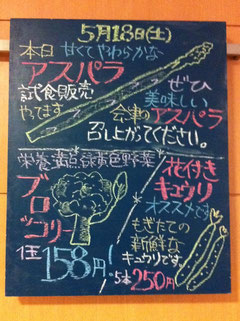 5月18日(土)
本日 甘くてやわらかな
アスパラ
試食販売
やってます
ぜひ
美味しい
会津のアスパラ
召し上がってください。
栄養満点緑黄色野菜
ブロッコリー
1コ 158円!
花付き
キュウリ
オススメです
もぎたての
新鮮な
キュウリです。
5本250円